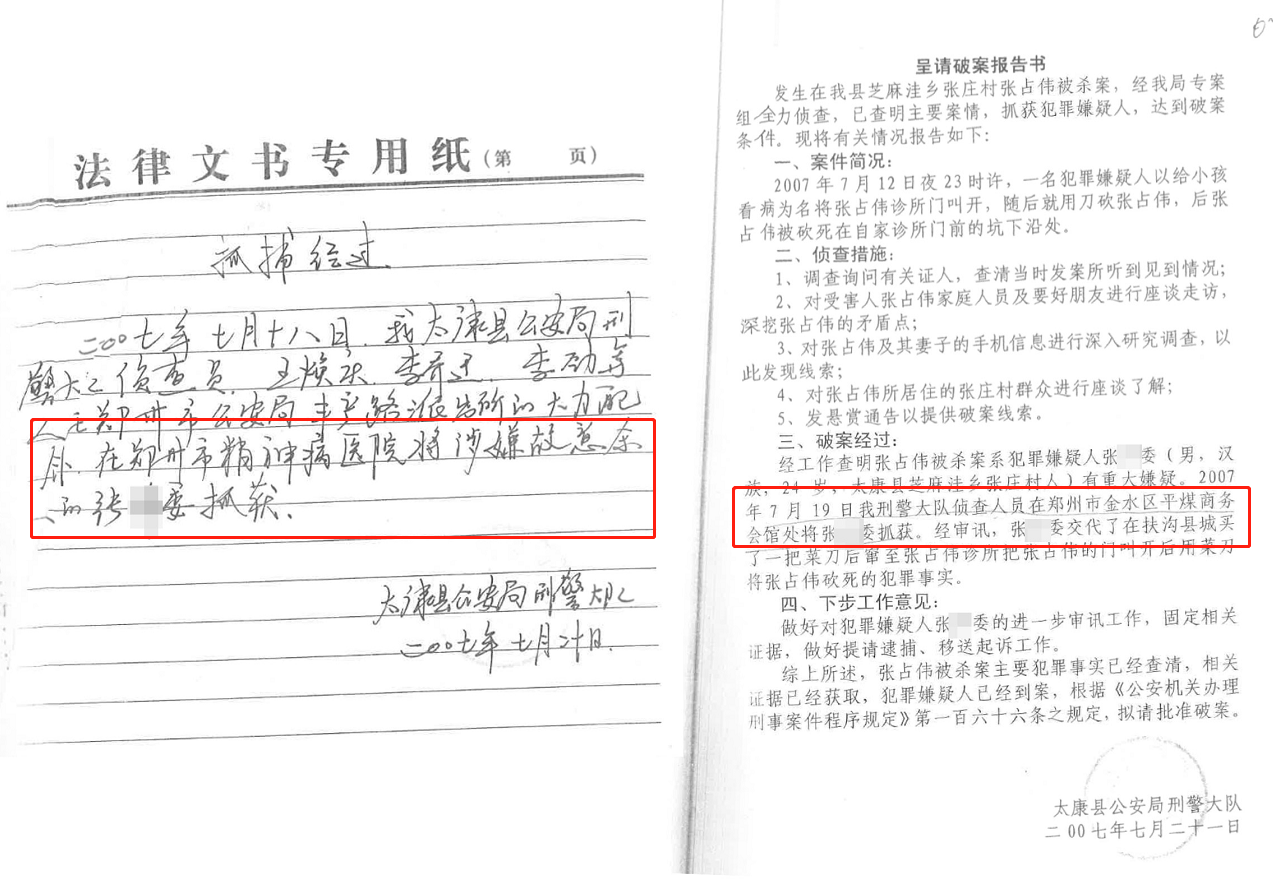 法律文书专用纸（第 页）
抓捕经过
二00七年七月十八日，我太康县公安局刑
警大队侦查员 王焕 李 李劲等
人在郑州市公安局丰产路派出所的大力配
合，在郑州市精神病医院将涉嫌故意杀
人的张 委抓获。
太康县公安局刑警大队
二00七年七月二十日
呈请破案报告书
发生在我县芝麻洼乡张庄村张占伟被杀案，经我局专案
组全力侦查，已查明主要案情，抓获犯罪嫌疑人，达到破案
条件。现将有关情况报告如下：
一、案件简况：
2007年7月12日夜23时许，一名犯罪嫌疑人以给小孩
看病为名将张占伟诊所门叫开，随后就用刀砍张占伟，后张
占伟被砍死在自家诊所门前的坑下沿处。
二、侦查措施：
1、调查询问有关证人，查清当时发案所听到见到情况；
2、对受害人张占伟家庭人员及要好朋友进行座谈走访，
深挖张占伟的矛盾点；
3、对张占伟及其妻子的手机信息进行深入研究调查，以
此发现线索；
4、对张占伟所居住的张庄村群众进行座谈了解；
5、发悬赏通告以提供破案线索。
三、破案经过：
经工作查明张占伟被杀案系犯罪嫌疑人张 委（男，汉
族，21岁，太康县芝麻洼乡张庄村人）有重大嫌疑。2007
年7月19日我刑警大队侦查人员在郑州市金水区平煤商务
会馆处将张 委抓获。经审讯，张 委交代了在扶沟县城买
了一把菜刀后窜至张占伟诊所把张占伟的门叫开后用菜刀
将张占伟砍死的犯罪事实。
四、下步工作意见：
做好对犯罪嫌疑人张 委的进一步审讯工作，固定相关
证据，做好提请逮捕、移送起诉工作。
综上所述，张占伟被杀案主要犯罪事实已经查清，相关
证据已经获取，犯罪嫌疑人已经到案，根据《公安机关办理
刑事案件程序规定》第一百六十六条之规定，拟请批准破案。
太康县公安局刑警大队
二00七年七月二十一日